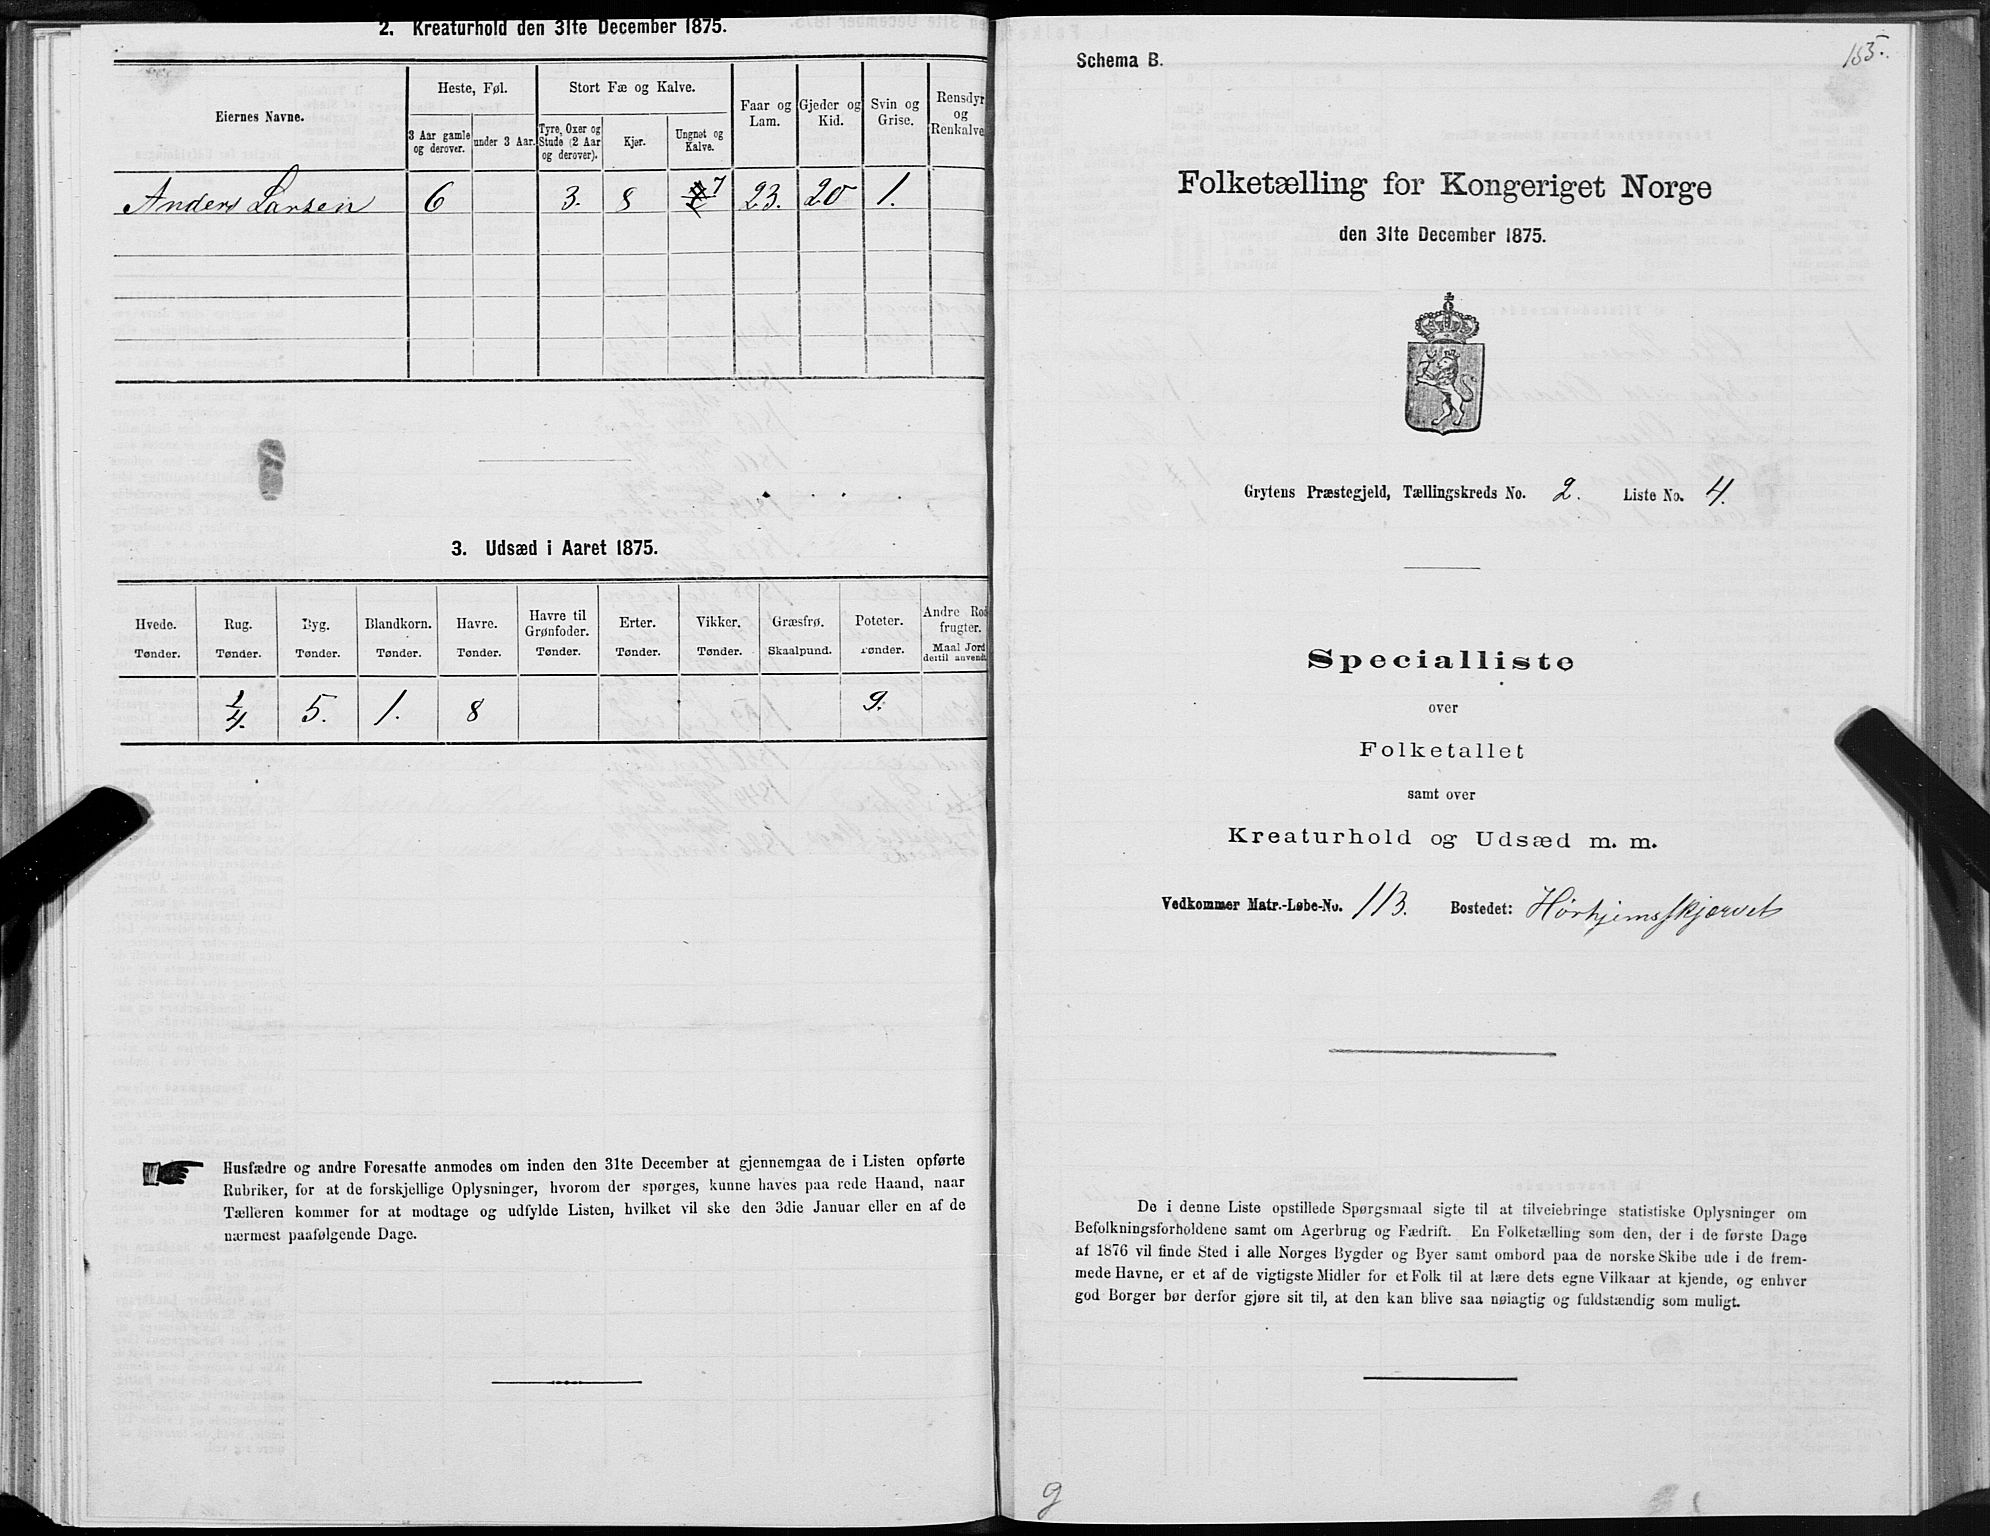 2. Kreaturhold den 31te December 1875.
Eiernes Navne.
Heste, Føl.
3 Aar gamle og derover.
under 3 Aar.
Stort Fæ og Kalve.
Tyre, Oxer og Stude (2 Aar og derover).
Kjør.
Ungnøt og Kalve.
Faar og Lam.
Gjeder og Kid.
Svin og Grise.
Rensdyr og Renkalve
Anders Larsen 6 3. 8 7 23. 20 1.
3. Udsæd i Aaret 1875.
Hvede. Rug. Byg. Blandkorn. Havre. Havre til Grønfoder. Erter. Vikker. Græsfrø. Poteter. Andre Rod frugter.
Tønder. Tønder. Tønder. Tønder. Tønder. Tønder. Tønder. Tønder. Skaalpund. Tønder. Maal Jord dertil anvendt
1/4. 5. 1. 8 9.
Husfædre og andre Foresatte anmodes om inden den 31te December at gjennemgaa de i Listen opførte
Rubriker, for at de forskjellige Oplysninger, hvorom der spørges, kunne haves paa rede Haand, naar
Tælleren kommer for at modtage og udfylde Listen, hvilket vil ske den 3die Januar eller en af de
nærmest paafølgende Dage.
Schema B.
155.
Folketælling for Kongeriget Norge
den 31te December 1875.
Grytens Præstegjeld, Tællingskreds No. 2. Liste No. 4.
Specialliste
over
Folketallet
samt over
Kreaturhold og Udsæd m. m.
Vedkommer Matr.-Løbe-No. 113. Bostedet: Hørhjemsskjærvet
De i denne Liste opstillede Spørgsmaal sigte til at tilveiebringe statistiske Oplysninger om
Befolkningsforholdene samt om Agerbrug og Fædrift. En Folketælling som den, der i de første Dage
af 1876 vil finde Sted i alle Norges Bygder og Byer samt ombord paa de norske Skibe ude i de frem-
mede Havne, er et af de vigtigste Midler for et Folk til at lære dets egne Vilkaar at kjende, og enhver
god Borger bør derfor gjøre sit til, at den kan blive saa nøiagtig og fuldstændig som muligt.
g